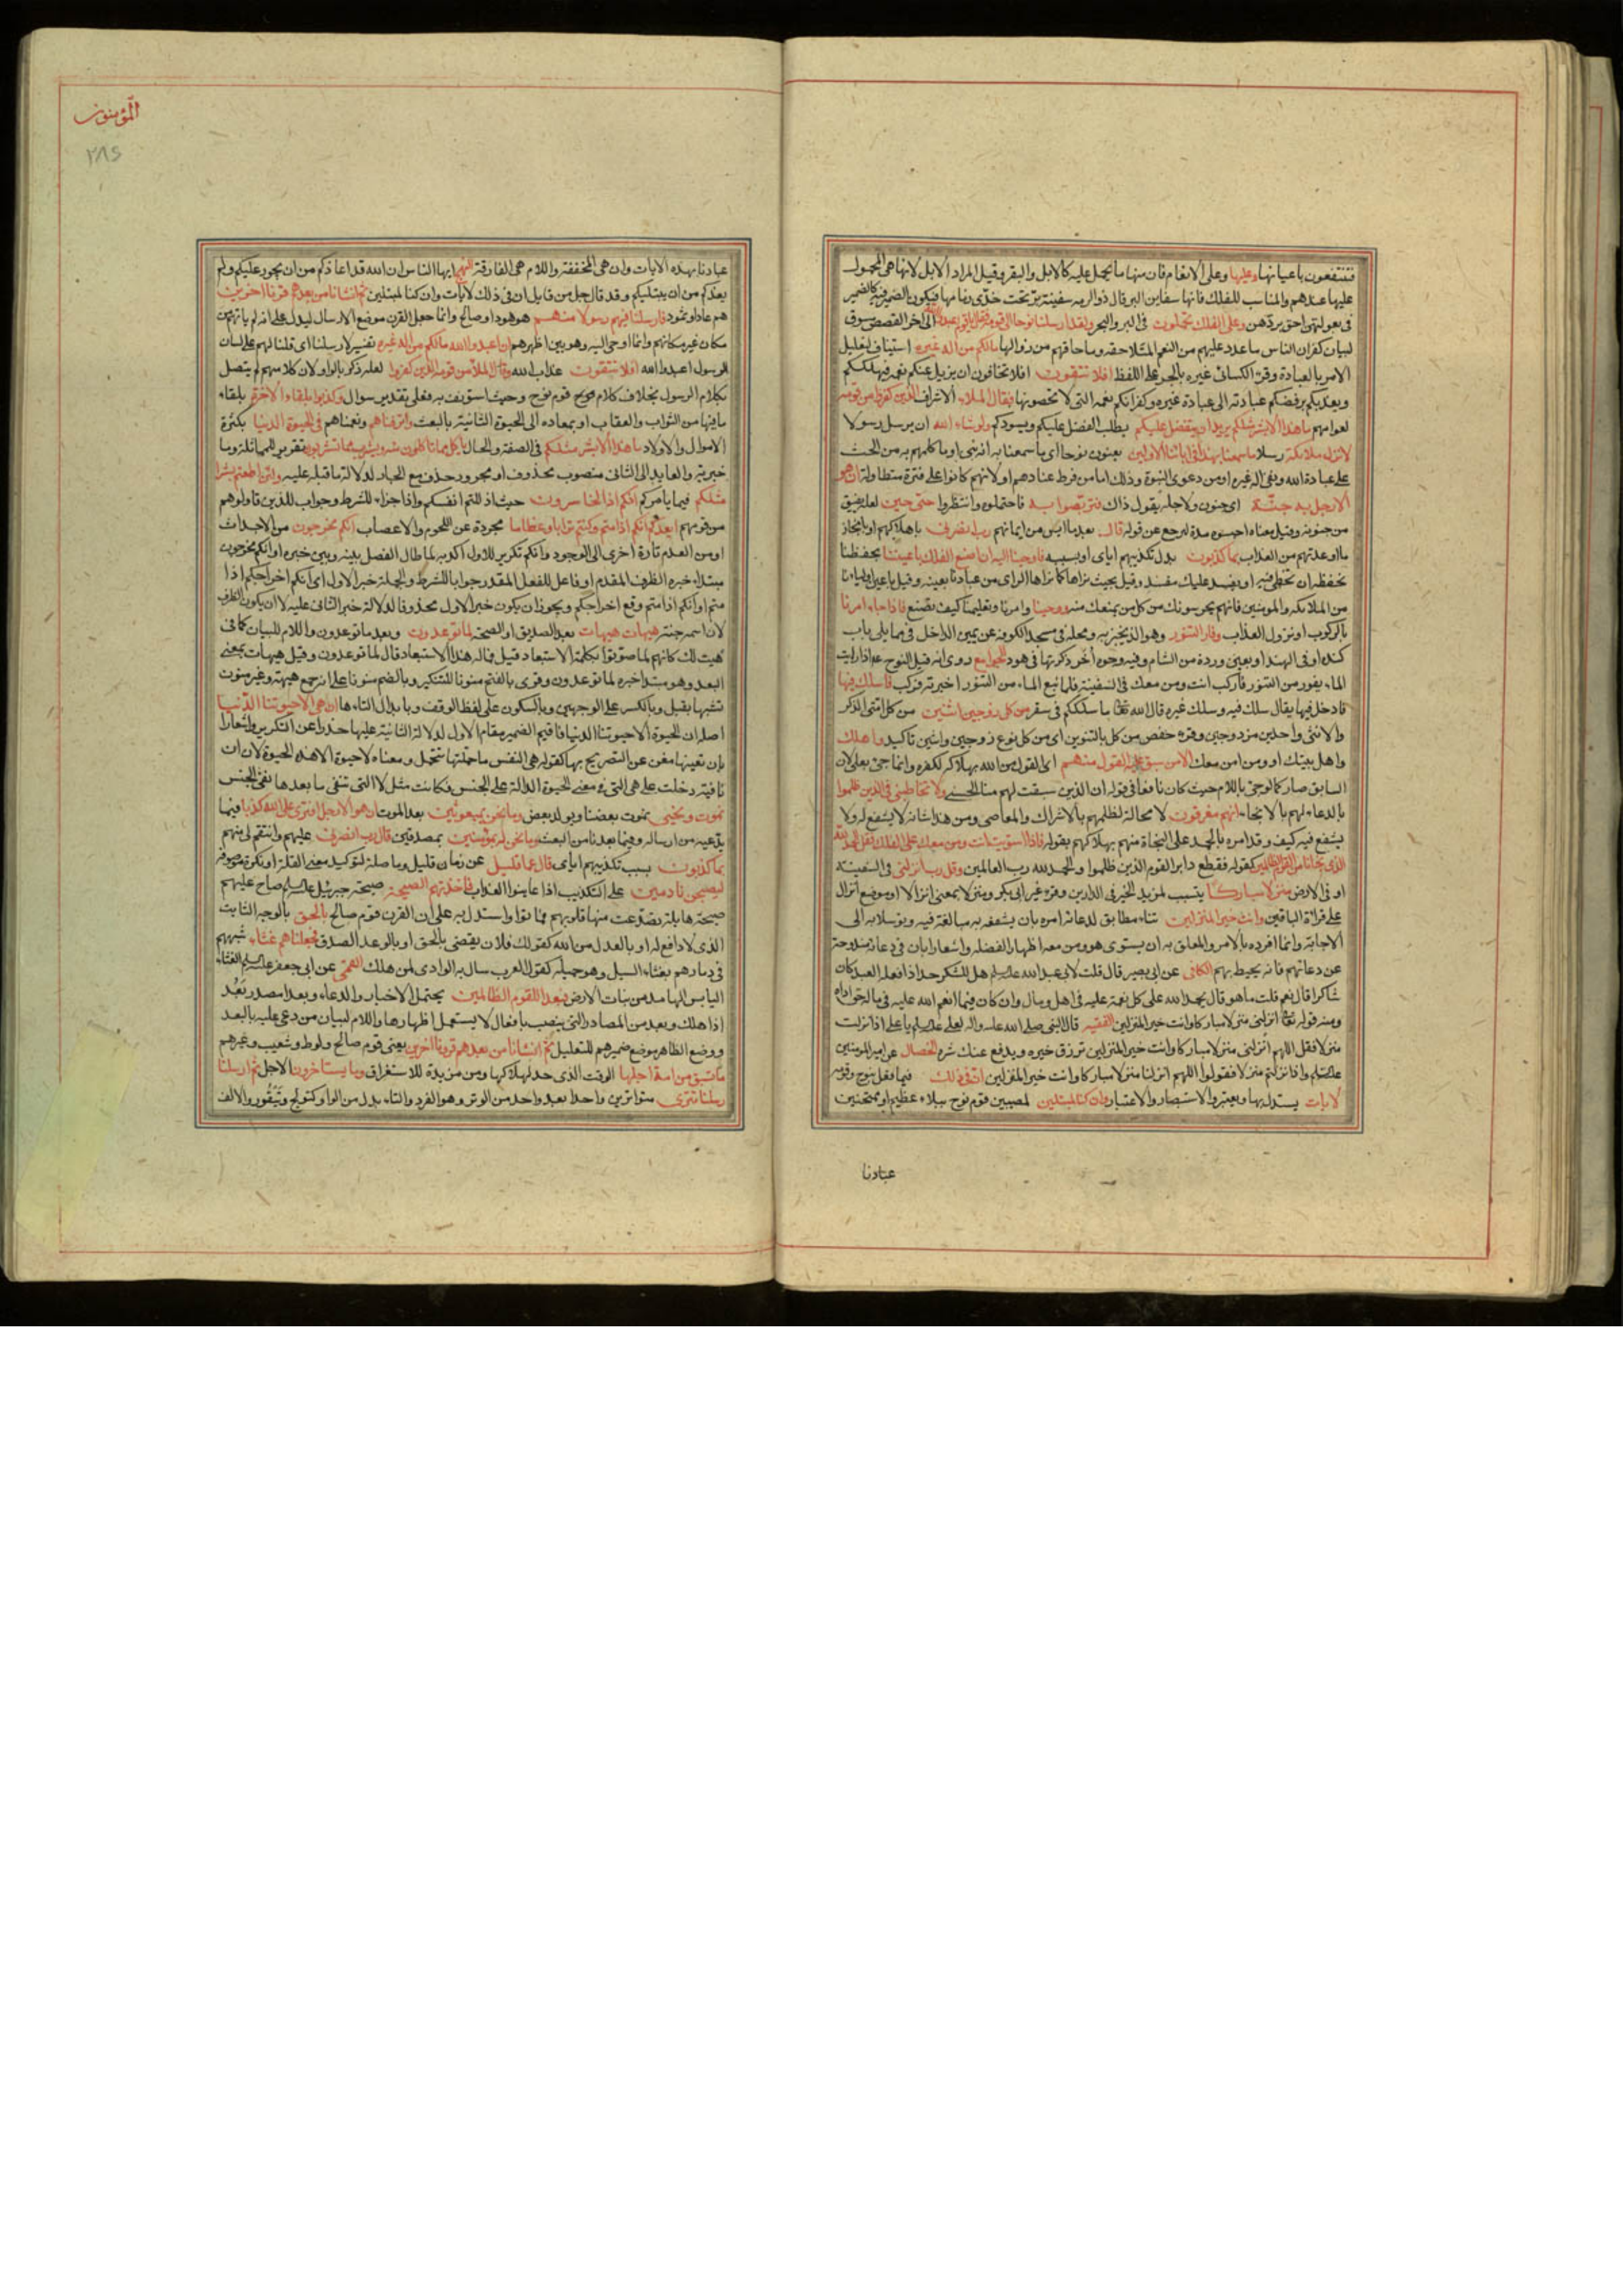 فتنتفعون باعيانها وعليها وعلى الانعام فان منها ما يحمل عليه كالابل والبقر وقيل المراد الابل لانها هي المحمول
عليها عندهم والمناسب للفلك فانها سفاين البر قال ذو الرمه سفينة بر تحت خدي زمامها فيكون الضمير فيه كالضمير
في بعولتهن احق بردهن وعلى الفلك تحملون في البر والبحر ولقد ارسلنا نوحا الى قومه فقال يا قوم اعبدوا الله الى آخر القصص مسوق
لبيان كفران الناس ما عدد عليهم من النعم المتلاحقه وما حاقهم من زوالها مالكم من اله غيره استيناف لتعليل
الامر بالعبادة وقرئ الكسائي غيره بالجر على اللفظ افلا تتقون افلا تخافون ان يزيل عنكم نعمه فيهلككم
ويعذبكم برفضكم عبادته الى عبادة غيره وكفرانكم نعمه التي لا تحصونها فقال الملاء الاشراف الذين كفروا من قومه
لعوامهم ما هذا الا بشر مثلكم يريد ان يتفضل عليكم يطلب الفضل عليكم ويسودكم ولو شاء الله ان يرسل رسولا
لانزل ملائكة رسلا ما سمعنا بهذا في ابائنا الاولين يعنون نوحا اى ما سمعنا به انه نبي او ما كلمهم به من الحث
على عبادة الله ونفى اله غيره او من دعوى النبوة وذلك اما من فرط عنادهم او لانهم كانوا على فترة متطاولة ان هو
الا رجل به جنة اى جنون ولاجله يقول ذلك فتربصوا به فاحتملوه وانتظروا حتى حين لعله يفيق
من جنونه وقيل معناه احبسوه مدة ليرجع عن قوله قال بعد ما ايس من ايمانهم رب انصرني باهلاكهم او بانجاز
ما اوعدتهم من العذاب بما كذبون بدل تكذيبهم اياى او بسببه فاوحينا اليه ان اصنع الفلك باعيننا بحفظنا
نحفظه ان تخطئ فيه او يفسد عليك مفسد وقيل بحيث نراها كما يراها الرائ من عبادنا بعينه وقيل باعين اوليائنا
من الملائكه والمومنين فانهم يحرسونك من كل من يمنعك منه ووحينا وامرنا وتعليمنا كيف تصنع فاذا جاء امرنا
بالركوب او نزول العذاب وفار التنور وهو الذي يخبز به ومحله في مسجد الكوفه عن يمين الداخل في ما يلي باب
كنده او في الهند او بعين وردة من الشام وفيه وجوه أخر ذكرتها في هود الجوامع روى انه قيل لنوح ع اذا رايت
الماء يفور من التنور فاركب انت ومن معك في السفينة فلما نبع الماء من التنور اخبرته فركب فاسلك فيها
فادخل فيها يقال سلك فيه وسلك غيره قال الله تعالى ما سلككم في سقر من كل زوجين اثنين من كل امتى الذكر
والانثى واحدين مزدوجين وقرء حفص من كل بالتنوين اى من كل نوع زوجين واثنين تاكيد واهلك
واهل بيتك او ومن امن معك الا من سبق عليه القول منهم اى القول من الله بهلاكه لكفره وانما جئ بعلى لان
السابق ضار كما جئ باللام حيث كان نافعا في قوله ان الذين سبقت لهم منا الحسنى ولا تخاطبني في الذين ظلموا
بالدعاء لهم بالانجاء انهم مغرقون لا محالة لظلمهم بالاشراك والمعاصى ومن هذا شانه لا يشفع له ولا
يشفع فيه كيف وقد امره بالحمد على النجاة منهم بهلاكهم بقوله فاذا استويت انت ومن معك على الفلك فقل الحمد لله
الذي نجانا من القوم الظالمين كقوله فقطع دابر القوم الذين ظلموا والحمد لله رب العالمين وقل رب انزلني في السفينة
او في الارض منزلا مباركا يتسبب لمزيد الخير في الدارين وقرء غير ابي بكر ومنزلا بمعنى انزالا او موضع انزال
على قراة الباقين وانت خير المنزلين ثناء مطابق لدعائه امره بان يشفعه به مبالغة فيه وتوسلا به الى
الاجابة وانما افرده بالامر والمعلق به ان يستوى هو ومن معه اظهارا لفضله واشعارا بان في دعائه مندوحة
عن دعائهم فانه يحيط بهم الكافي عن ابي بصير قال قلت لابي عبد الله عليه السلام هل للشكر حد اذا فعله العبد كان
شاكرا قال نعم قلت ما هو قال يحمد الله على كل نعمة عليه في اهل ومال وان كان فيما انعم الله عليه في ماله حق اداه
ومنه قوله تعالى انزلني منزلا مباركا وانت خير المنزلين الفقيه قال النبي صلى الله عليه واله لعلي عليه السلام يا علي اذا نزلت
منزلا فقل اللهم انزلني منزلا مباركا وانت خير المنزلين ترزق خيره ويدفع عنك شره الخصال عن امير المومنين
عليه السلام واذا نزلتم منزلا فقولوا اللهم انزلنا منزلا مباركا وانت خير المنزلين ان في ذلك فيما فعل بنوح وقومه
لايات يستدل بها ويعتبر اولا الاستبصار والاعتبار وان كنا لمبتلين لمصيبين قوم نوح ببلاء عظيم او ممتحنين
عبادنا
المؤمنون
٢٨٤
عبادنا بهذه الايات وان هي المخففة واللام هي الفارقة النهج ايها الناس ان الله قد اعاذكم من ان يجور عليكم ولم
يعذكم من ان يبتليكم وقد قال جل من قايل ان في ذلك لايات وان كنا لمبتلين ثم انشانا من بعدهم قرنا اخرين
هم عاد او ثمود فارسلنا فيهم رسولا منهم هو هود او صالح وانما جعل القرن موضع الارسال ليدل على انه لم ياتهم من
مكان غير مكانهم وانما اوحى اليه وهو بين اظهرهم ان اعبدوا الله مالكم من اله غيره تفسير لارسلنا اى قلنا لهم على لسان
الرسول اعبدوا الله افلا تتقون عذاب الله وقال الملا من قومه الذين كفروا لعله ذكر بالواو لان كلامهم لم يتصل
بكلام الرسول بخلاف كلام قوم نوح وحيث استونف به فعلى تقدير سوال وكذبوا بلقاء الاخرة بلقاء
ما فيها من الثواب والعقاب او بمعاده الى الحيوة الثانية بالبعث واترفناهم ونعمناهم في الحيوة الدنيا بكثرة
الاموال والاولاد ما هذا الا بشر مثلكم في الصفة والحال ياكل مما تاكلون منه ويشرب مما تشربون تقرير للمماثلة وما
خبرية والعايد الى الثاني منصوب محذوف او مجرور حذف مع الجار لدلالة ما قبله عليه ولئن اطعتم بشرا
مثلكم فيما يامركم انكم اذا لخاسرون حيث اذللتم انفسكم واذا جزاء للشرط وجواب للذين قاولوهم
من قومهم ايعدكم انكم اذا متم وكنتم ترابا وعظاما مجردة عن اللحوم والاعصاب انكم مخرجون من الاجداث
او من العدم تارة اخرى الى الوجود وانكم تكرير للاول اكد به لما طال الفصل بينه وبين خبره او انكم مخرجون
مبتداء خبره الظرف المقدم او فاعل للفعل المقدر جوابا للشرط والجملة خبر الاول اى انكم اخراجكم اذا
متم او انكم اذا متم وقع اخراجكم ويجوز ان يكون خبر الاول محذوفا لدلالة خبر الثاني عليه لا ان يكون الظرف
لان اسمه جثة هيهات هيهات بعد التصديق او الصحة لما توعدون وبعد ما توعدون واللام للبيان كما في
هيت لك كانهم لما صوتوا بكلمة الاستبعاد قيل فما له هذا الاستبعاد قال لما توعدون وقيل هيهات بمعنى
البعد وهو مبتدا خبره لما توعدون وقرى بالفتح منونا للتنكير وبالضم منونا على انه جمع هيهة وغير منون
تشبيها بقبل وبالكسر على الوجهين وبالسكون على لفظ الوقف وبابدال التاء ها ان هي الا حيوتنا الدنيا
اصله ان الحيوة الا حيوتنا الدنيا فاقيم الضمير مقام الاول لدلالة الثانية عليها حذرا عن التكرير واشعارا
بان تعينها مغن عن التصريح بها كقوله هي النفس ما حملتها تتحمل ومعناه لا حيوة الا هذه الحيوة لان ان
نافية دخلت على هي التي في معنى الحيوة الدالة على الجنس فكانت مثل لا التي تنفى ما بعدها نفى الجنس
نموت ونحيى يموت بعضنا ويولد بعض وما نحن بمبعوثين بعد الموت ان هو الا رجل افترى على الله كذبا فيما
يدعيه من ارساله وفيما يعدنا من البعث وما نحن له بمؤمنين بمصدقين قال رب انصرني عليهم وانتقم لي منهم
بما كذبون بسبب تكذيبهم اياى قال عما قليل عن زمان قليل وما صلة لتوكيد معنى القلة او نكرة موصوفة
ليصبحن نادمين على التكذيب اذا عاينوا العذاب فاخذتهم الصيحة صيحة جبرئيل عليه السلام صاح عليهم
صيحة هايلة تصدعت منها قلوبهم فماتوا واستدل به على ان القرن قوم صالح بالحق بالوجه الثابت
الذي لا دافع له او بالعدل من الله كقولك فلان يقضى بالحق او بالوعد الصدق فجعلناهم غثاء شبههم
في دمارهم بغثاء السيل وهو حميله كقول العرب سال به الوادى لمن هلك القمي عن ابي جعفر عليه السلام الغثاء
اليابس الهامد من نبات الارض فبعدا للقوم الظالمين يحتمل الاخبار والدعاء وبعدا مصدر بَعُد
اذا هلك وبعد من المصادر التي ينصب بافعال لا يستعمل اظهارها واللام لبيان من دعى عليه بالبعد
ووضع الظاهر موضع ضميرهم للتعليل ثم انشانا من بعدهم قرونا اخرين يعنى قوم صالح ولوط وشعيب وغيرهم
ما تسبق من امة اجلها الوقت الذي حد لهلاكها ومن مزيدة للاستغراق وما يستاخرون الاجل ثم ارسلنا
رسلنا تترى متواترين واحدا بعد واحد من الوتر وهو الفرد والتاء بدل من الواو كتولج وتَيْقُور والالف